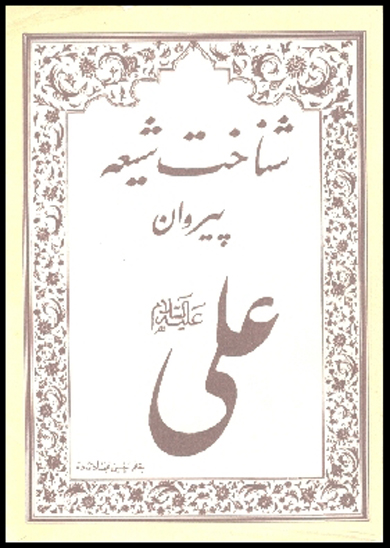 شناخت شیعه
پیروان
علی
علیه السلام
بقلم